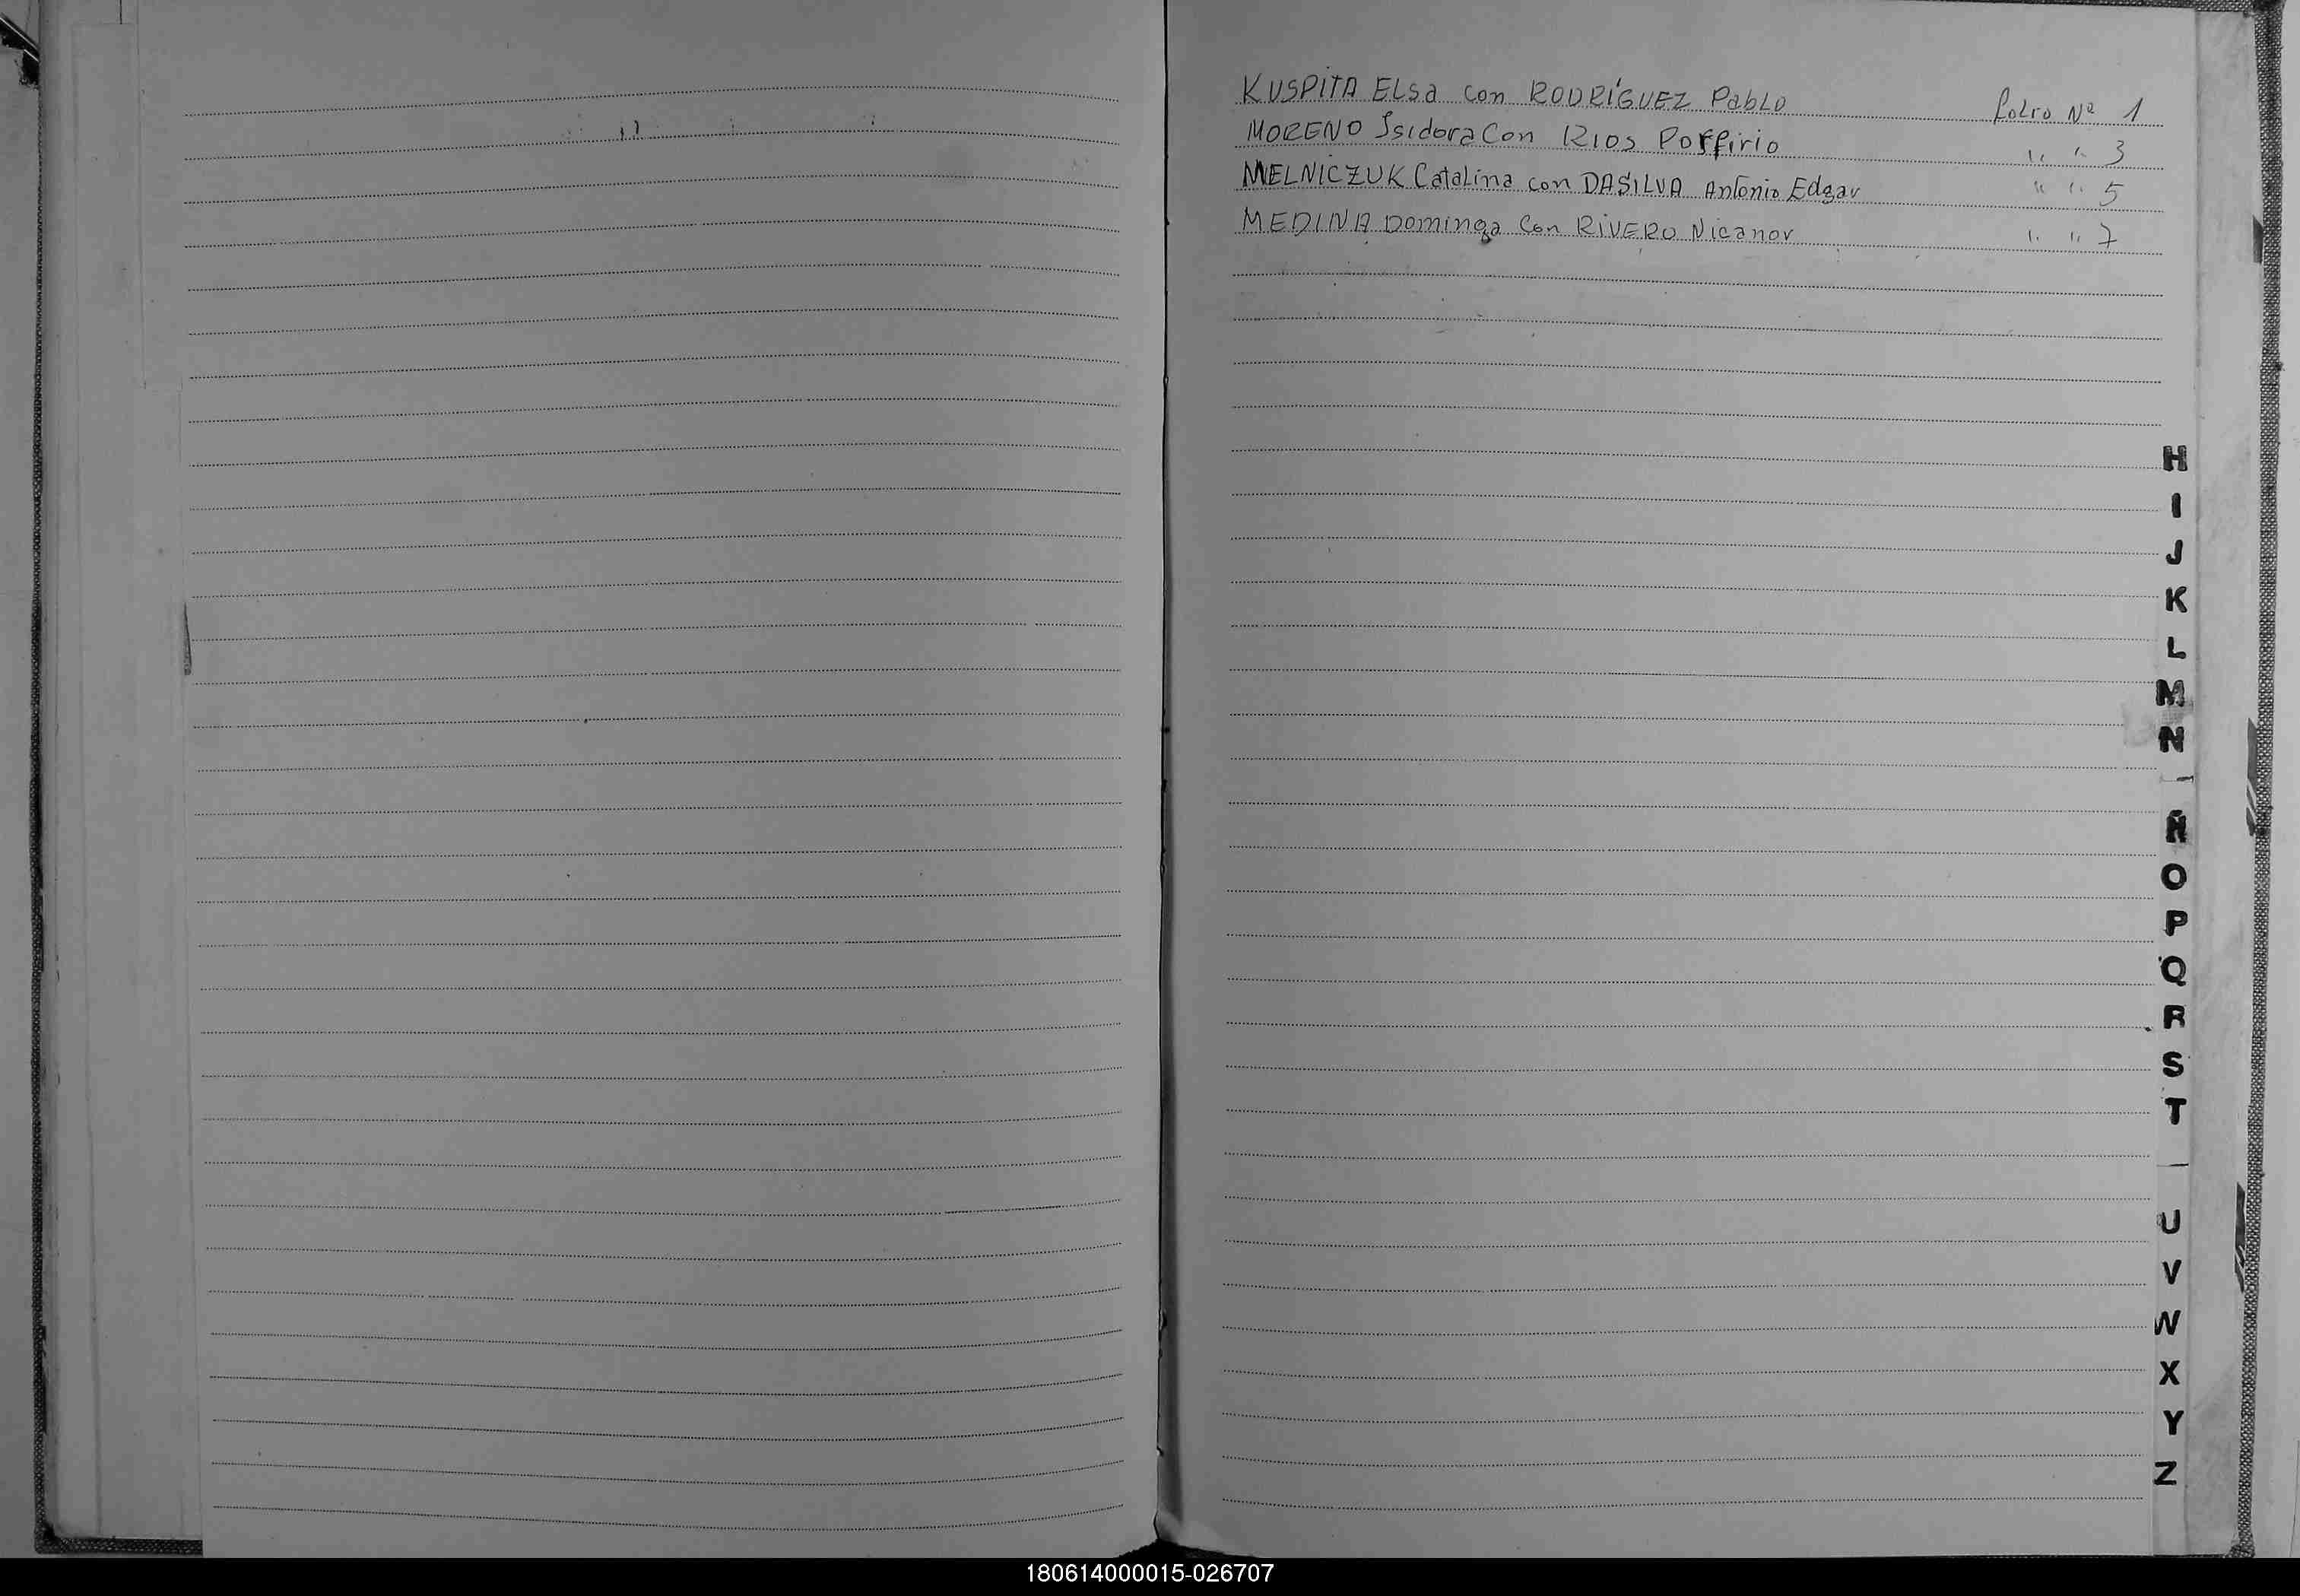 KUSPITA ELSa con RODRÍGUEZ PabLO folio Nº 1
MORENO Isidora Con RIOS Porfirio " " 3
MELNICZUK CataLina con DASILVA Antonio Edgar " " 5
MEDINA Dominga Con RIVERO Nicanor " " 7
H
I
J
K
L
M
N
Ñ
O
P
Q
R
S
T
U
V
W
X
Y
Z
180614000015-026707